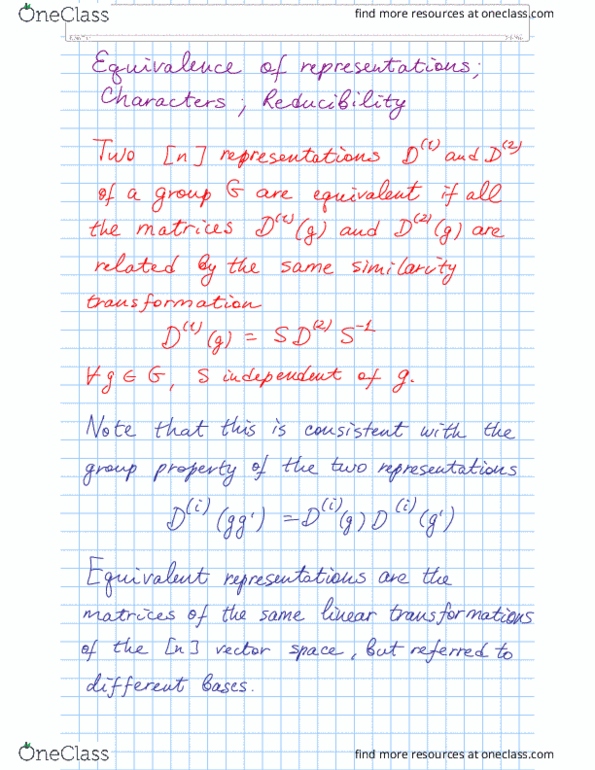 OneClass
find more resources at oneclass.com
Equivalence of representations;
Characters; Reducibility
Two [n] representations D⁽¹⁾ and D⁽²⁾
of a group G are equivalent if all
the matrices D⁽¹⁾(g) and D⁽²⁾(g) are
related by the same similarity
transformation
D⁽¹⁾(g) = S D⁽²⁾ S⁻¹
∀ g ∈ G, S independent of g.
Note that this is consistent with the
group property of the two representations
D⁽ⁱ⁾(gg') = D⁽ⁱ⁾(g) D⁽ⁱ⁾(g')
Equivalent representations are the
matrices of the same linear transformations
of the [n] vector space, but referred to
different bases.
OneClass
find more resources at oneclass.com